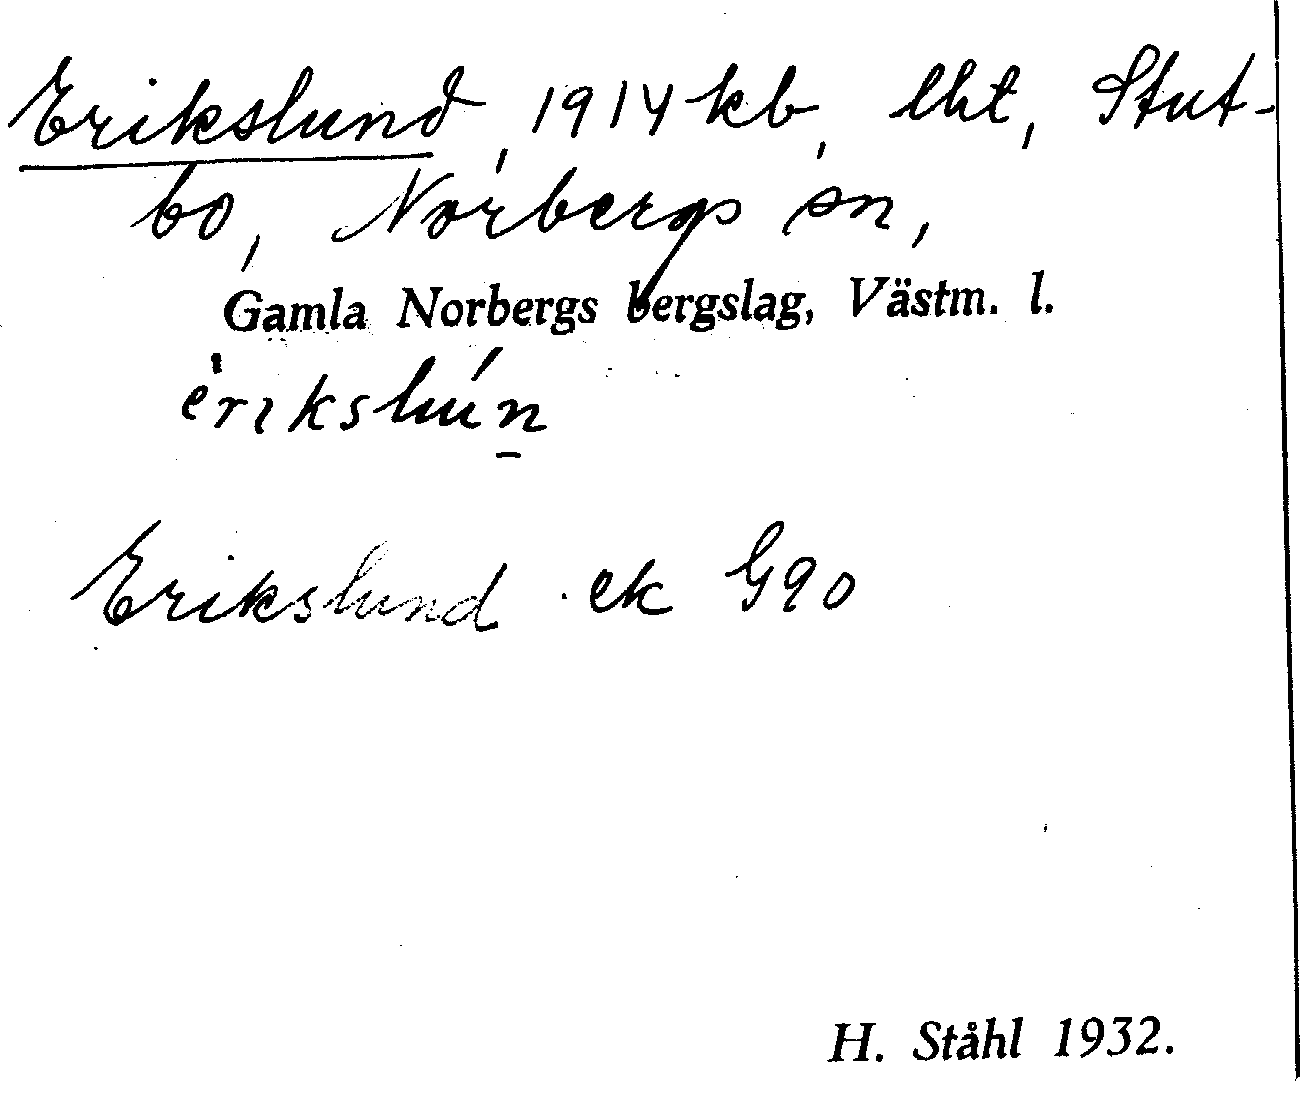 Erikslund, 1914 kb, lht, Stut-
bo, Norbergs sn,
Gamla Norbergs bergslag, Västm. l.
èrikslún̲
Erikslund ek G90
H. Ståhl 1932.